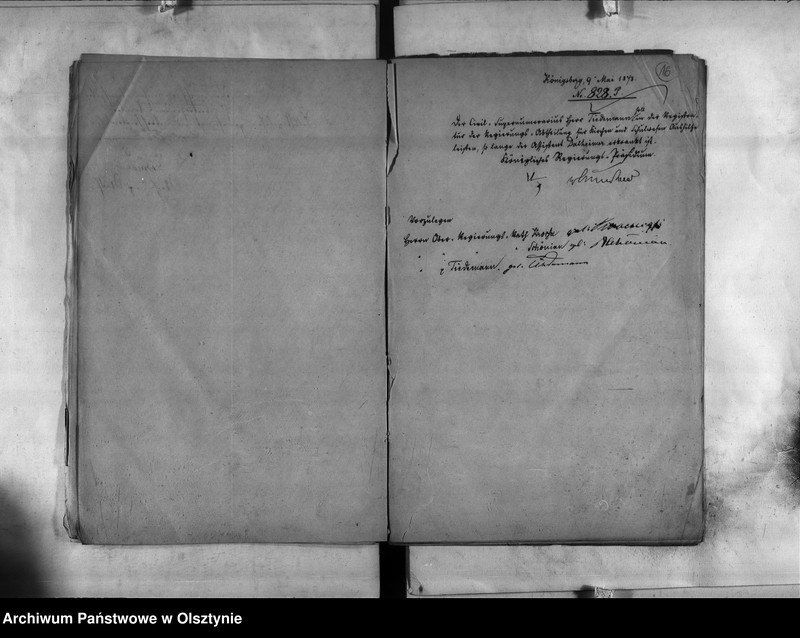 16
Königsberg, 9 Mai 1873
No. 828. 9
Der Civil-Supernumerarius Herr Tiedemann soll in der Registra-
tur der Regierungs-Abtheilung für Kirchen und Schulwesen Aushilfe
leisten, so lange der Assistent erkrankt ist.
Königliches Regierungs-Präsidium.
Vorzulegen
Herrn Ober-Regierungs-Rath ges.
" "
" Tiedemann, ges. Tiedemann
Archiwum Państwowe w Olsztynie